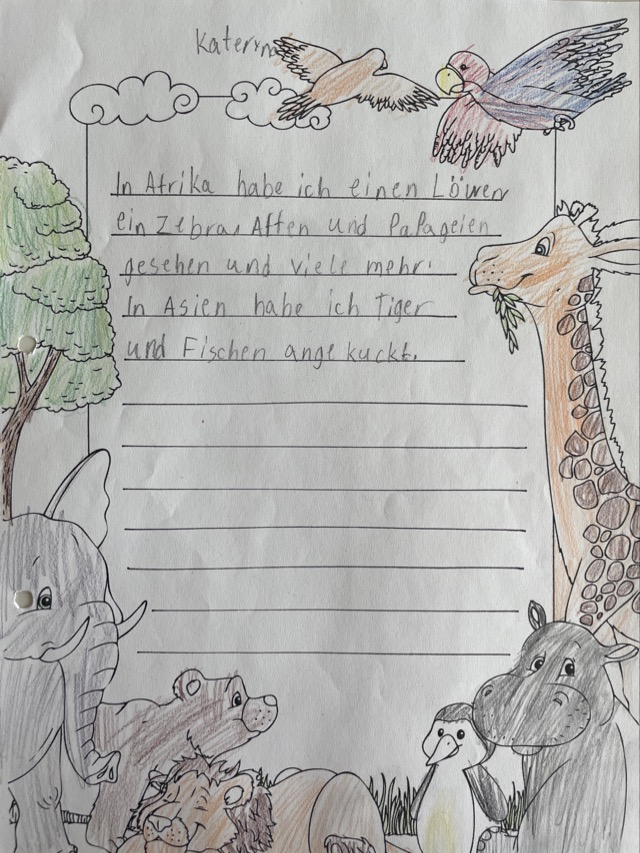 Kateryna
In Afrika habe ich einen Löwen
ein Zebra, Affen und Papageien
gesehen und viele mehr.
In Asien habe ich Tiger
und Fischen angekuckt.